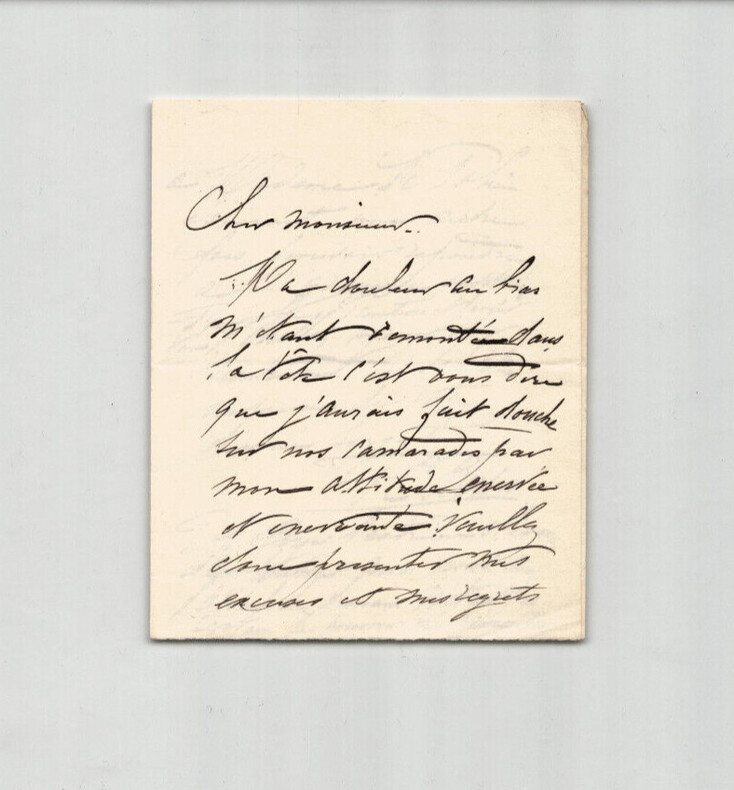 Cher monsieur.
Ma douleur au bras
m'étant remontée dans
la tête c'est vous dire
que j'aurais fait douche
sur nos camarades par
mon attitude énervée
et énervante. Veuillez
donc présenter mes
excuses et mes regrets